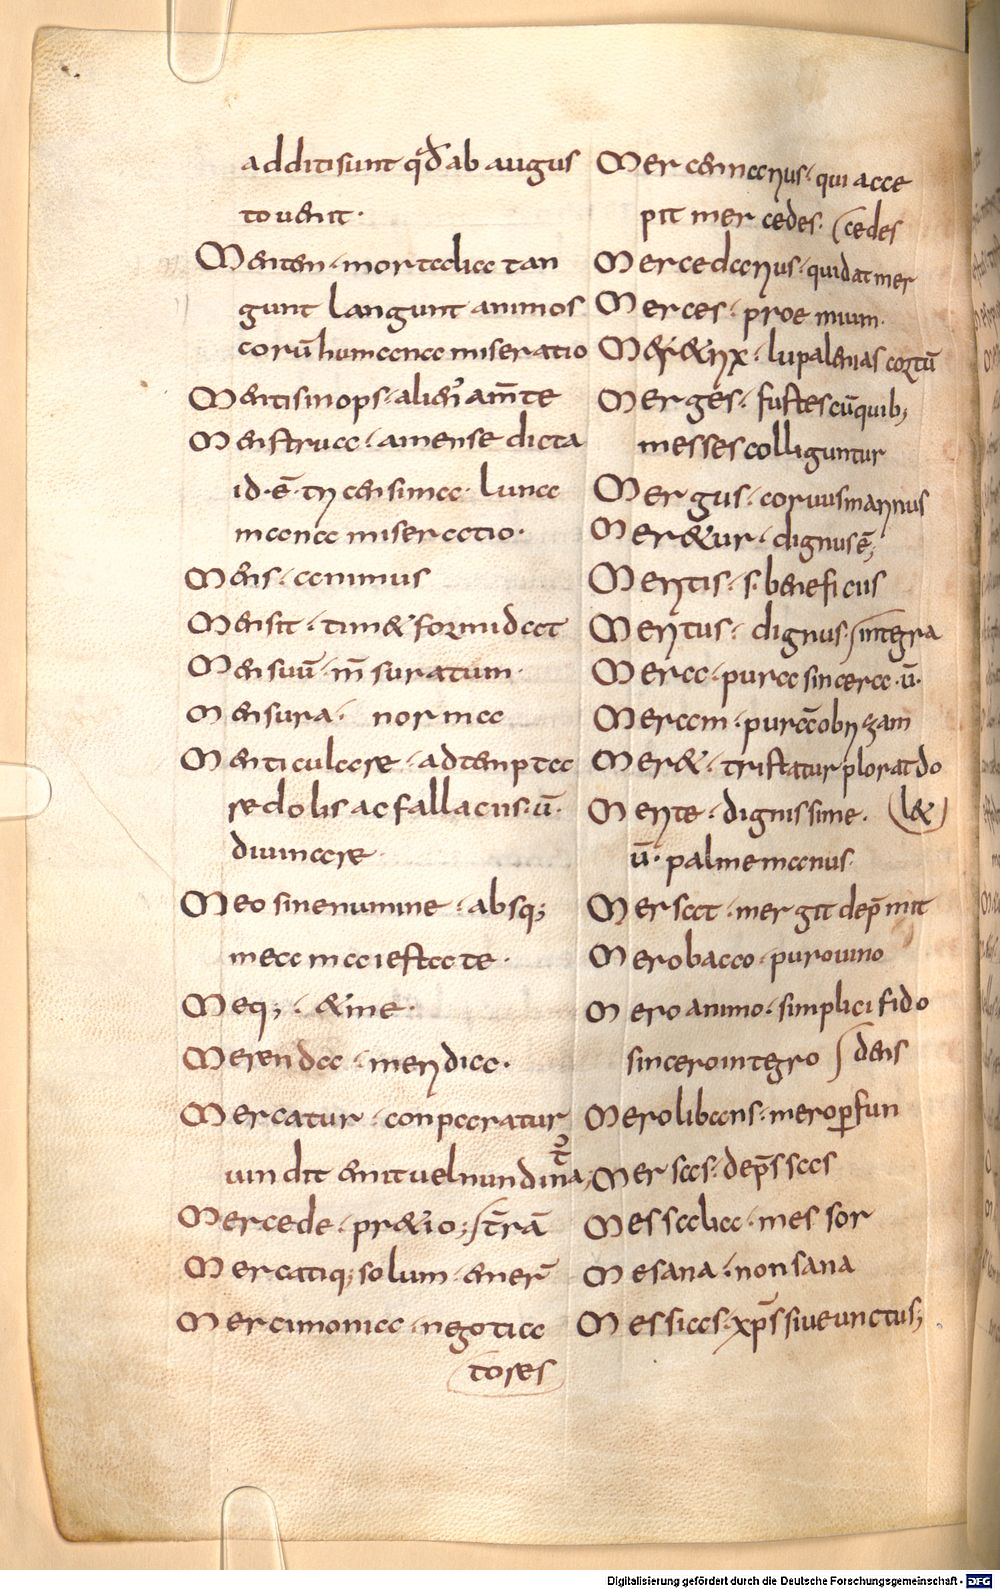 additi sunt qđ ab augus
to uenit·
Menten · mortalia tan
gunt langunt animos
corū humana miseratio
Mentis inops · alien᾽ am̅te
Menstrua · a mense dicta
id·ē· tricensima· luna
in anc miseratio·
Mens · animus
Mensit · tim& formidat
Mensuū · m̅suratum·
Mensura · norma
Menticulare · ad temptac
re dolis ac fallaciis· ū·
diuinare·
Meo sine numine · absq;
mea maiestate·
Meq; · & me·
Merenda · meridie·
Mercatur · conparatur
uindit emit uel nundina
t᾽
Mercede · pr&io; t̅rā
Mercatiq; solum · emer̅
Mercimonia · negotia
tores
Mercennarius · qui acce
pit mercedes· cedes
Mercedarius · qui dat mer
Merces · proemium·
Mer&rix · lupa lenias cortū
Merges · fustes cū quib;
messes colliguntur
Mergus · coruus marinus
Mer&ur · dignus ē;
Meritis · s· beneficiis
Meritus · dignus· integra
Mera · pura sincera· ū·
Meram · purā obrizam
Mer& · tristatur plorat do
Merite · dignissime· l&
ū· palmem manus·
Mersat · mergit dep̅mit
Mero bacco · puro uino
Mero animo · simplici fido
sincero integro dens
Mero libans · mero ꝑfun
Mersas · dep̅ssas
Messalia · messor
Mesana · non sana
Messias · xp̅s siue unctus;
Digitalisierung gefördert durch die Deutsche Forschungsgemeinschaft - DFG